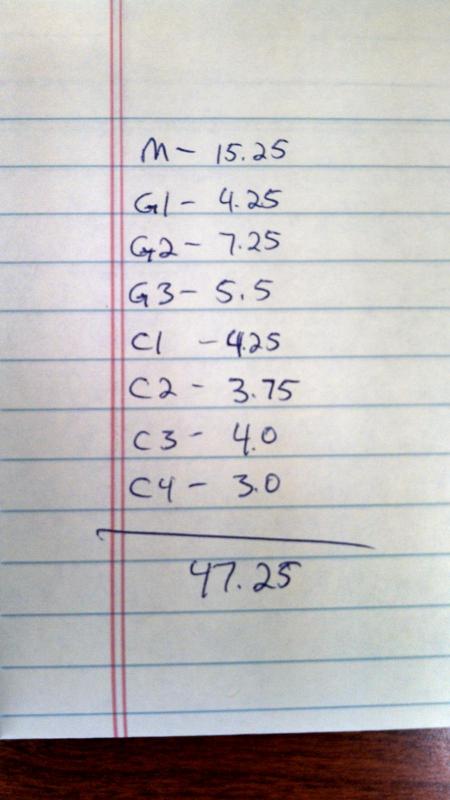 M - 15.25
G1 - 4.25
G2 - 7.25
G3 - 5.5
C1 - 4.25
C2 - 3.75
C3 - 4.0
C4 - 3.0
47.25